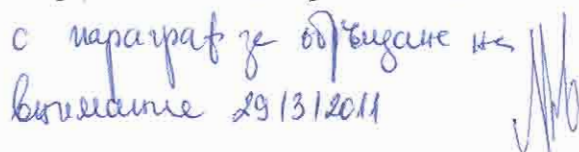 с параграф за обръщане на
внимание 29/3/2011